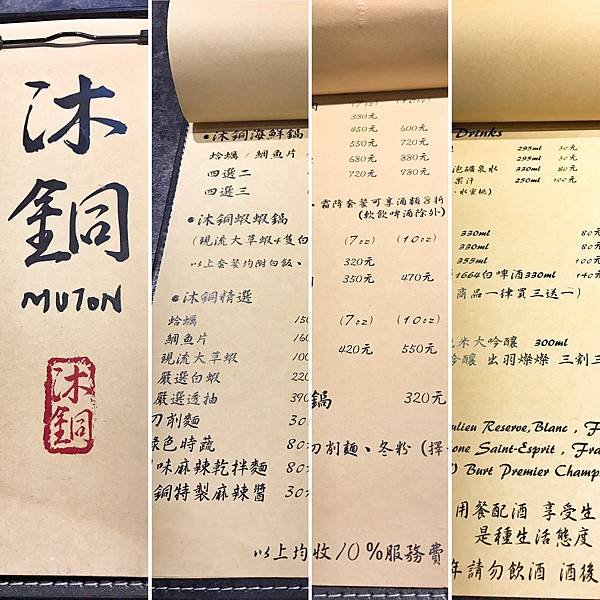 沐
銅
MUTON
沐
銅
沐銅海鮮鍋
蛤蠣 / 鯛魚片 /
四選二
四選三
沐銅蝦蝦鍋
(現流大草蝦4隻白
以上套餐均附白飯、
沐銅精選
蛤蠣 150
鯛魚片 160
現流大草蝦 100
嚴選白蝦 220
嚴選透抽 390
刀削麵 30元
綠色時蔬 80元
味麻辣乾拌麵 80元
銅特製麻辣醬 30元
(7oz) (10oz)
380元
450元 600元
550元 720元
680元 880元
720元 980元
霜降套餐可享酒類8折
(軟飲啤酒除外)
(7oz) (10oz)
320元
350元 470元
(7oz) (10oz)
420元 550元
鍋 320元
刀削麵、冬粉 (擇
以上均收10%服務費
Drinks
295ml 50元
295ml 50元
泡礦泉水 330ml 80元
果汁 250ml 100元
、水蜜桃)
330ml 80元
330ml 80元
355ml 100元
1664白啤酒330ml 140元
商品一律買三送一)
米大吟釀 300ml
吟釀 出羽燦燦 三割三
ulieu Reserve,Blanc , F
one Saint-Esprit , Fra
) Burt Premier Champ
用餐配酒 享受生
是種生活態度
年請勿飲酒 酒後